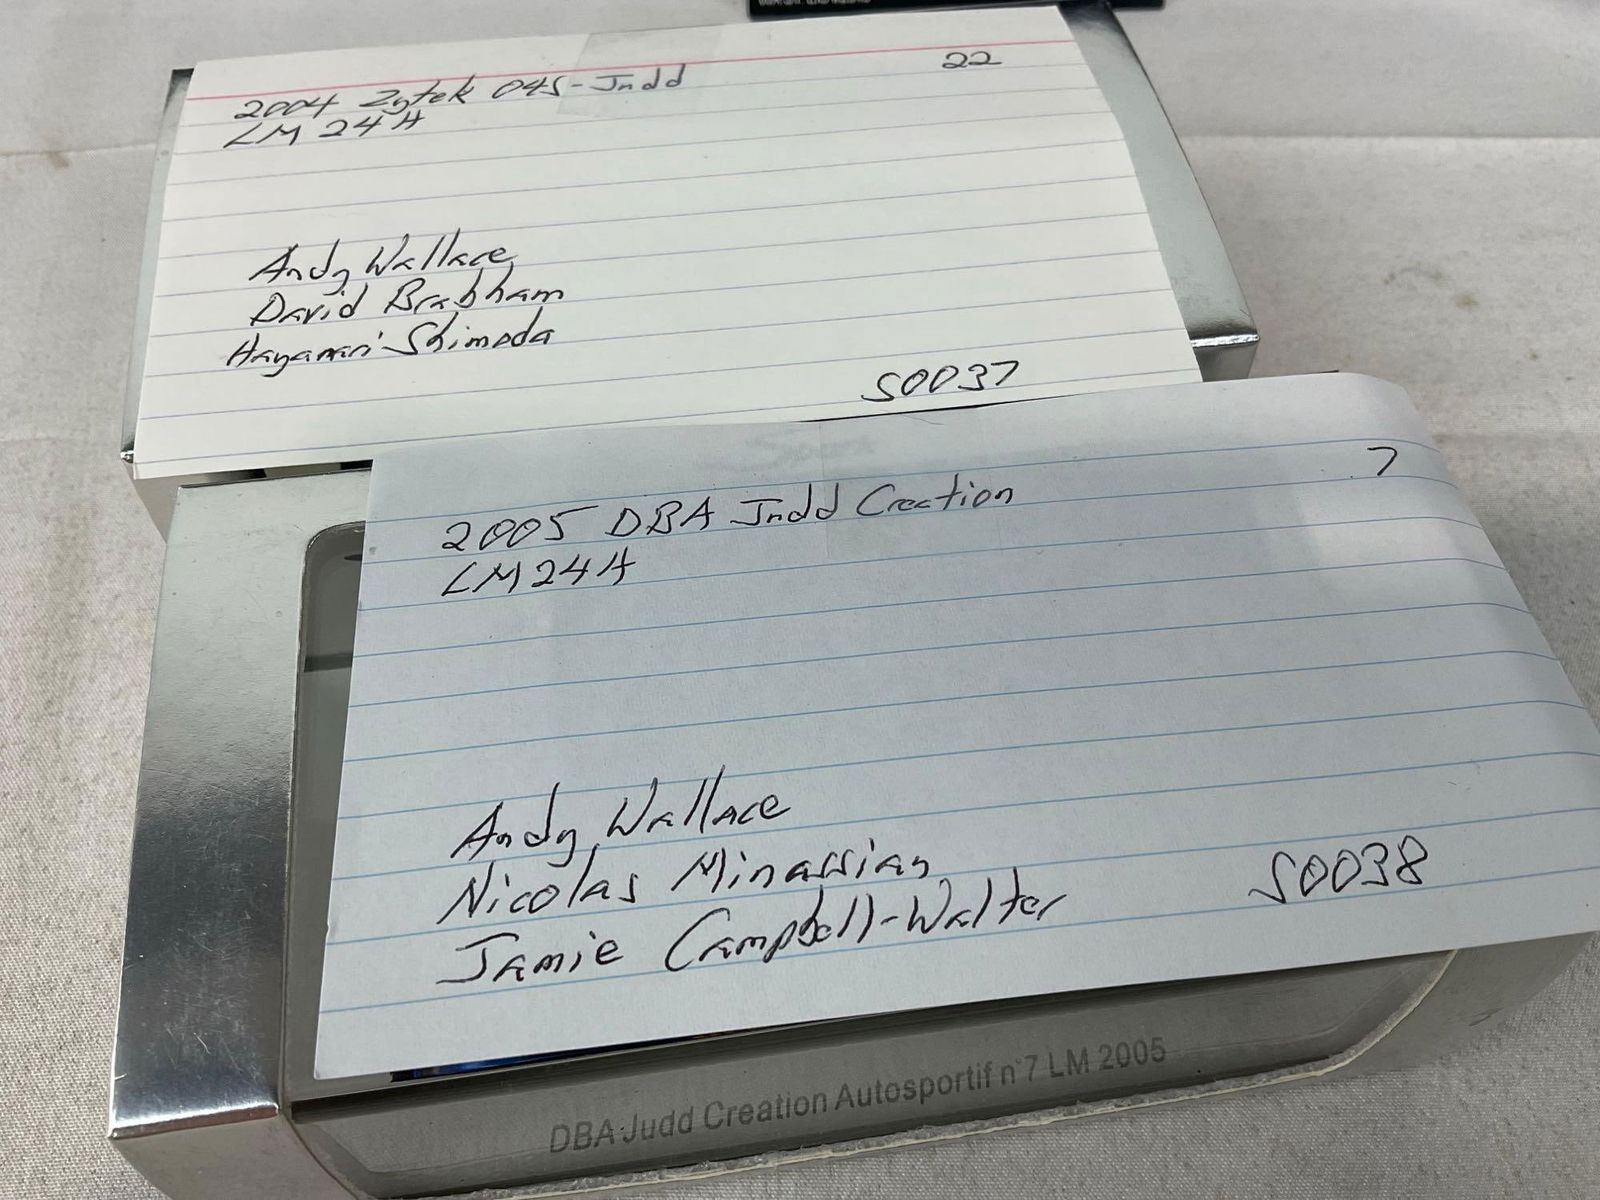 2004 Zytek 04S-Judd 22
LM 24H
Andy Wallace
David Brabham
Hayanari Shimoda
S0037
2005 DBA Judd Creation 7
LM24H
Andy Wallace
Nicolas Minassian
Jamie Campbell-Walter
S0038
DBA Judd Creation Autosportif n°7 LM 2005